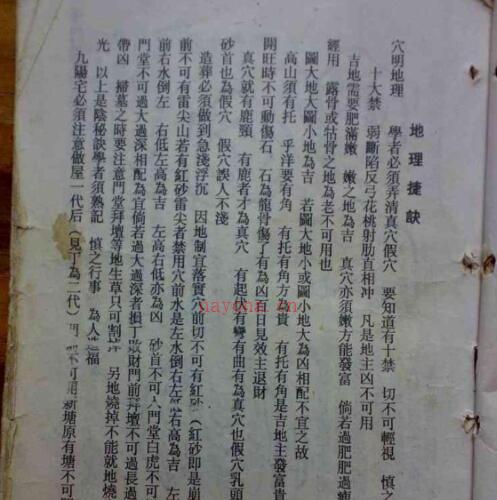 地理捷訣
穴明地理 學者必須弄清真穴假穴 要知道有十禁 切不可輕視 慎之
十大禁 弱斷陷反弓花桃射肋直相冲 凡是地主凶不可用
吉地需要肥滿嫩 嫩之地為吉 真穴亦須嫩方能發富 倘若過肥肥過瘦
經用 露骨或牯骨之地為老不可用也
圖大地大圖小地為吉 若圖大地小或圖小地大為凶相配不宜之故
高山須有托 乎洋要有角 有托有角方為貴 有托有角是吉地主發富貴
開旺時不可動傷石 石為龍骨傷了有為凶百日見效主退財
真穴就有鹿頸 有鹿者才為真穴 有起有彎有曲有為真穴也假穴乳頭
砂首也為假穴 假穴誤人不淺
造葬必須做到急淺浮沉 因地制宜落實穴前切不可有紅砂（紅砂即是崩
前不可有雷尖山若有紅砂雷尖者禁用穴前水是左水倒右左低右高為吉 左
前右水倒左 右低左高為吉 左高右低亦為凶 砂首不可入門堂白虎不可
門堂不可過大過深相配為宜倘若過大過深者損丁敗財門前拜壇不可過長過
帶凶 掃墓之時要注意門堂拜壇等地生草只可割 另地燒掉不能就地燒
光 以上是陰秘訣學者須熟記 慎之行事 為人造福
九陽宅必須注意做屋一代后（見丁為二代） 不可用新塘原有塘不可
nayona.cn